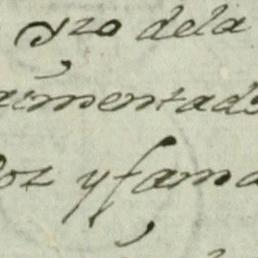 yzo dela
imentad
oz y fama